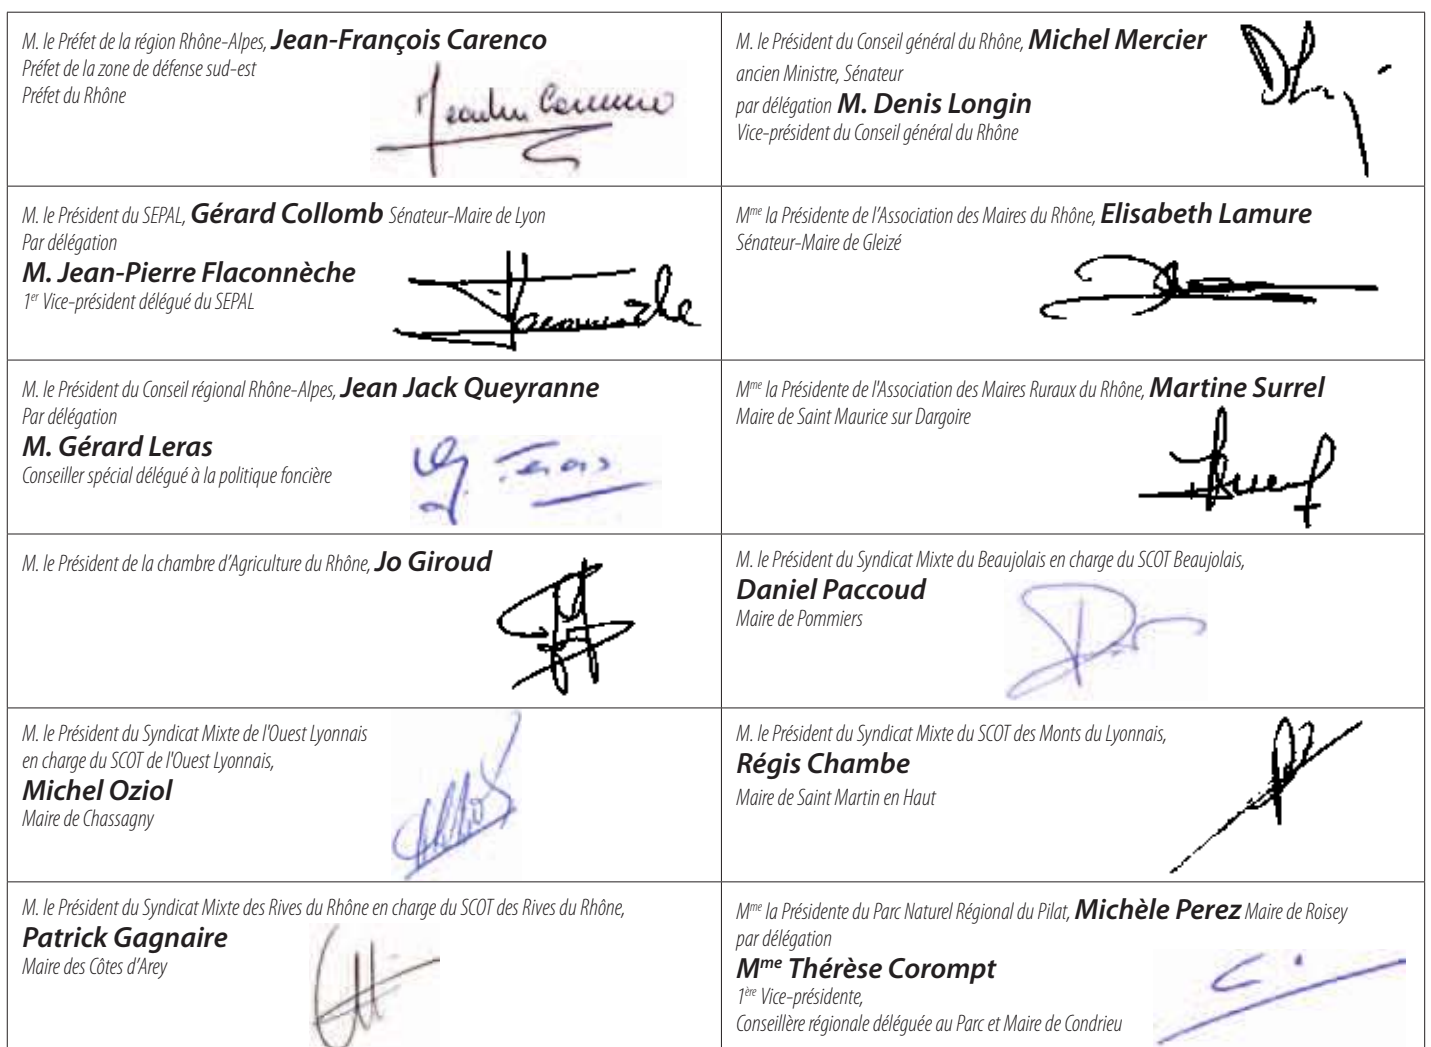 M. le Préfet de la région Rhône-Alpes, Jean-François Carenco
Préfet de la zone de défense sud-est
Préfet du Rhône
M. le Président du Conseil général du Rhône, Michel Mercier
ancien Ministre, Sénateur
par délégation M. Denis Longin
Vice-président du Conseil général du Rhône
M. le Président du SEPAL, Gérard Collomb Sénateur-Maire de Lyon
Par délégation
M. Jean-Pierre Flaconnèche
1er Vice-président délégué du SEPAL
Mme la Présidente de l'Association des Maires du Rhône, Elisabeth Lamure
Sénateur-Maire de Gleizé
M. le Président du Conseil régional Rhône-Alpes, Jean Jack Queyranne
Par délégation
M. Gérard Leras
Conseiller spécial délégué à la politique foncière
Mme la Présidente de l'Association des Maires Ruraux du Rhône, Martine Surrel
Maire de Saint Maurice sur Dargoire
M. le Président de la chambre d'Agriculture du Rhône, Jo Giroud
M. le Président du Syndicat Mixte du Beaujolais en charge du SCOT Beaujolais,
Daniel Paccoud
Maire de Pommiers
M. le Président du Syndicat Mixte de l'Ouest Lyonnais
en charge du SCOT de l'Ouest Lyonnais,
Michel Oziol
Maire de Chassagny
M. le Président du Syndicat Mixte du SCOT des Monts du Lyonnais,
Régis Chambe
Maire de Saint Martin en Haut
M. le Président du Syndicat Mixte des Rives du Rhône en charge du SCOT des Rives du Rhône,
Patrick Gagnaire
Maire des Côtes d'Arey
Mme la Présidente du Parc Naturel Régional du Pilat, Michèle Perez Maire de Roisey
par délégation
Mme Thérèse Corompt
1ère Vice-présidente,
Conseillère régionale déléguée au Parc et Maire de Condrieu